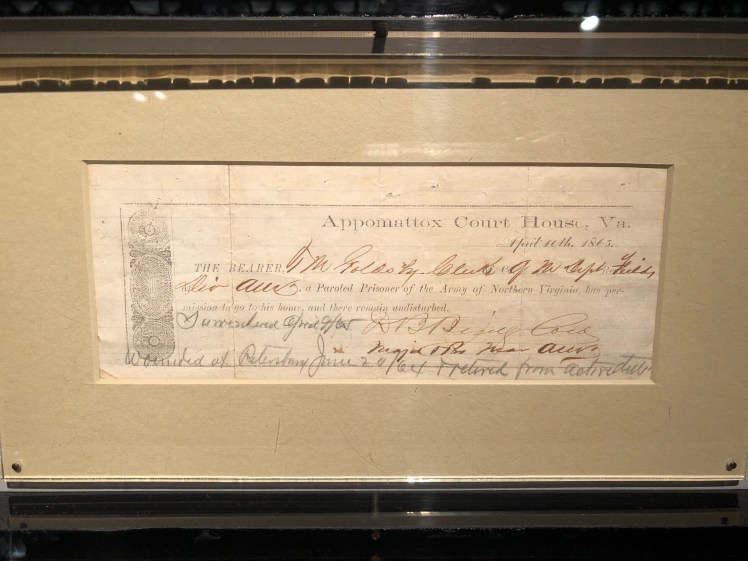 Appomattox Court House, Va.
April 10th, 1865.
THE BEARER, M Goldsby Clerk Q M Dept Fields
Div, a Paroled Prisoner of the Army of Northern Virginia, has per-
mission to go to his home, and there remain undisturbed.
Surrendered April 9/65
Major
Wounded at Petersburg June 20/64 & retired from active duty